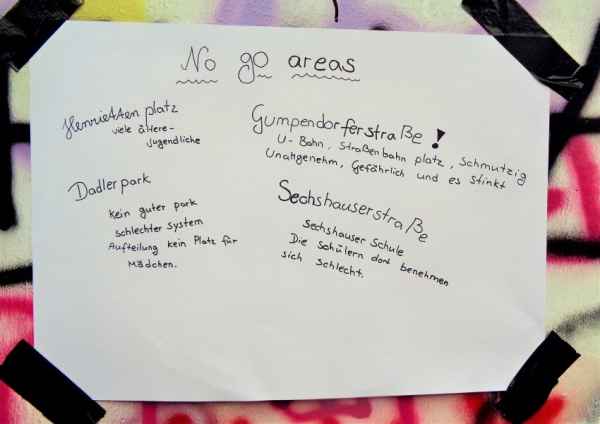 No go areas
Henrietten platz
viele ältere-
Jugendliche
Dadlerpark
Kein guter park
schlechter System
Aufteilung kein Platz für
Mädchen.
Gumpendorferstraße!
U-Bahn, Straßenbahn platz, Schmutzig
Unangenehm, Gefährlich und es stinkt
Sechshauserstraße
Sechshauser Schule
Die Schülern dort benehmen
sich schlecht.